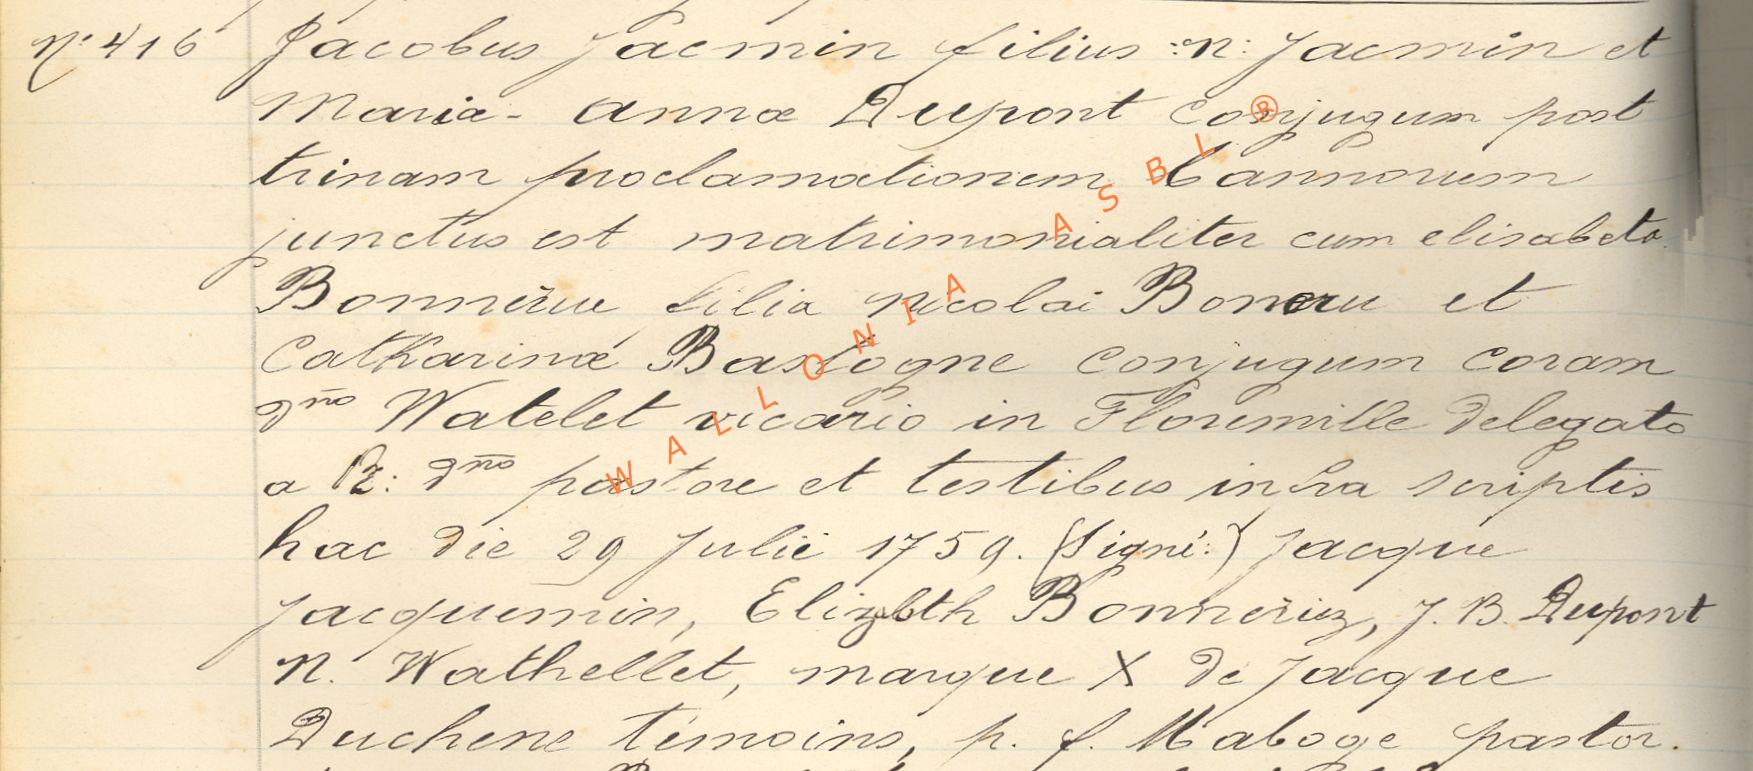 N° 416 Jacobus Jacmin filius :n: Jacmin et
Maria- annæ Dupont conjugum post
trinam proclamationem bannorum
junctus est matrimonialiter cum elisabeta
Bonnerue filia nicolai Boneru et
Catharinæ Bastogne conjugum coram
dno Watelet vicario in Florenville delegato
a R: dno pastore et testibus infra scriptis
hac die 29 Julii 1759. (Signé:) Jacque
Jacquemin, Elizbth Bonneriez, J. B. Dupont
N. Wathellet, marque X de Jacque
Duchene témoins, p. f. Maboge pastor.
WALLONIA ASBL ®